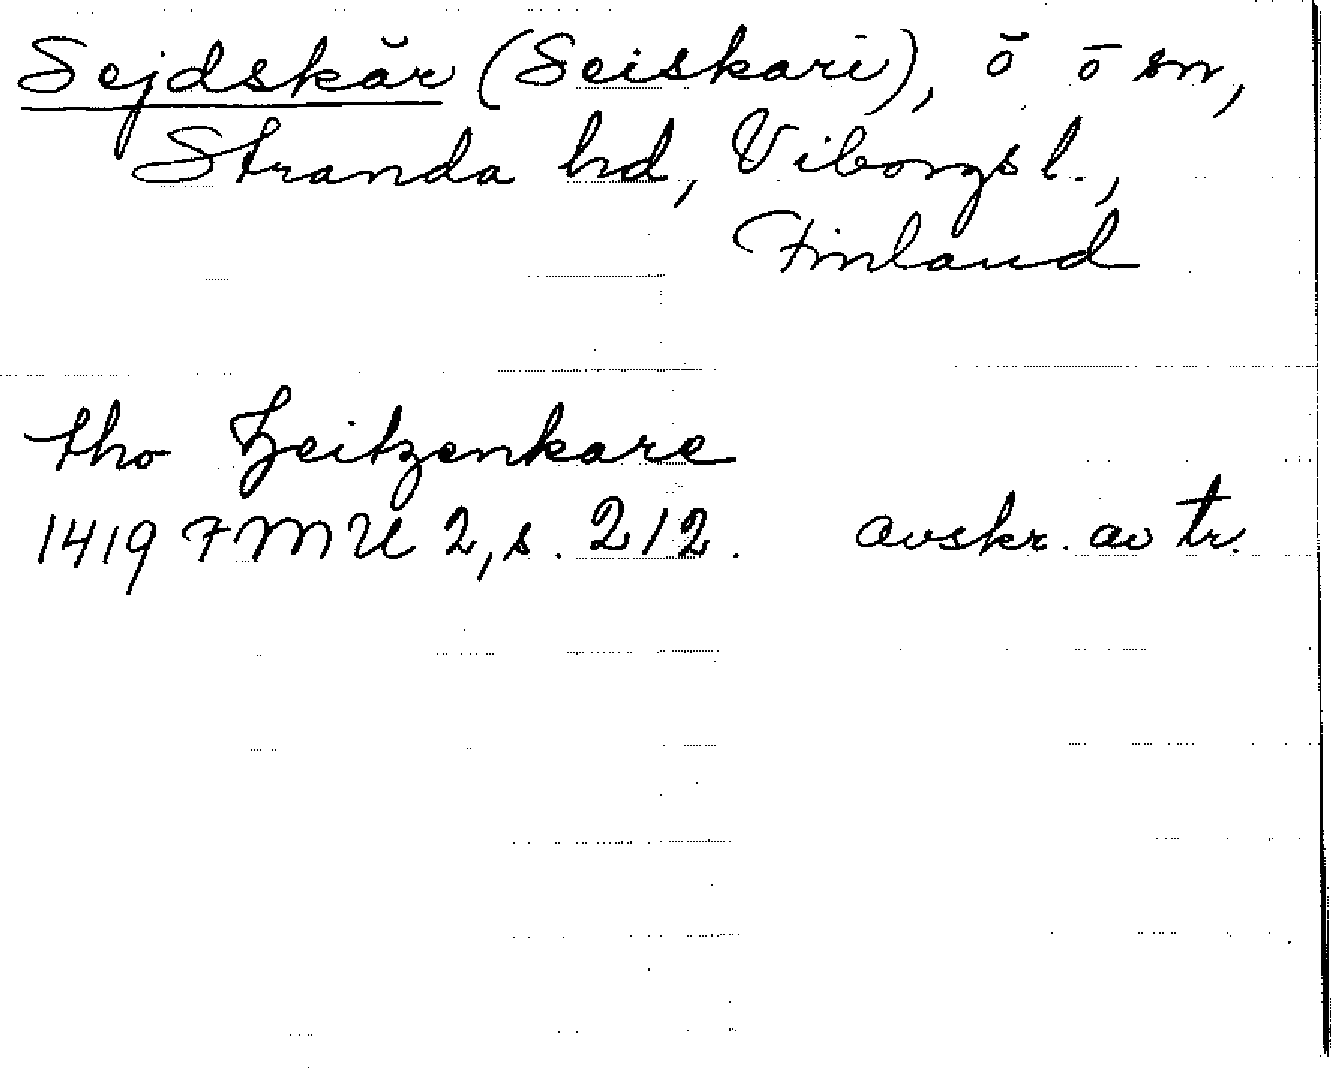 Sejdskär (Seiskari), ö ö sn,
Stranda hd, Viborgs l.,
Finland
tho Zeitzenkare
1419 FMU 2, s. 212. avskr. av tr.